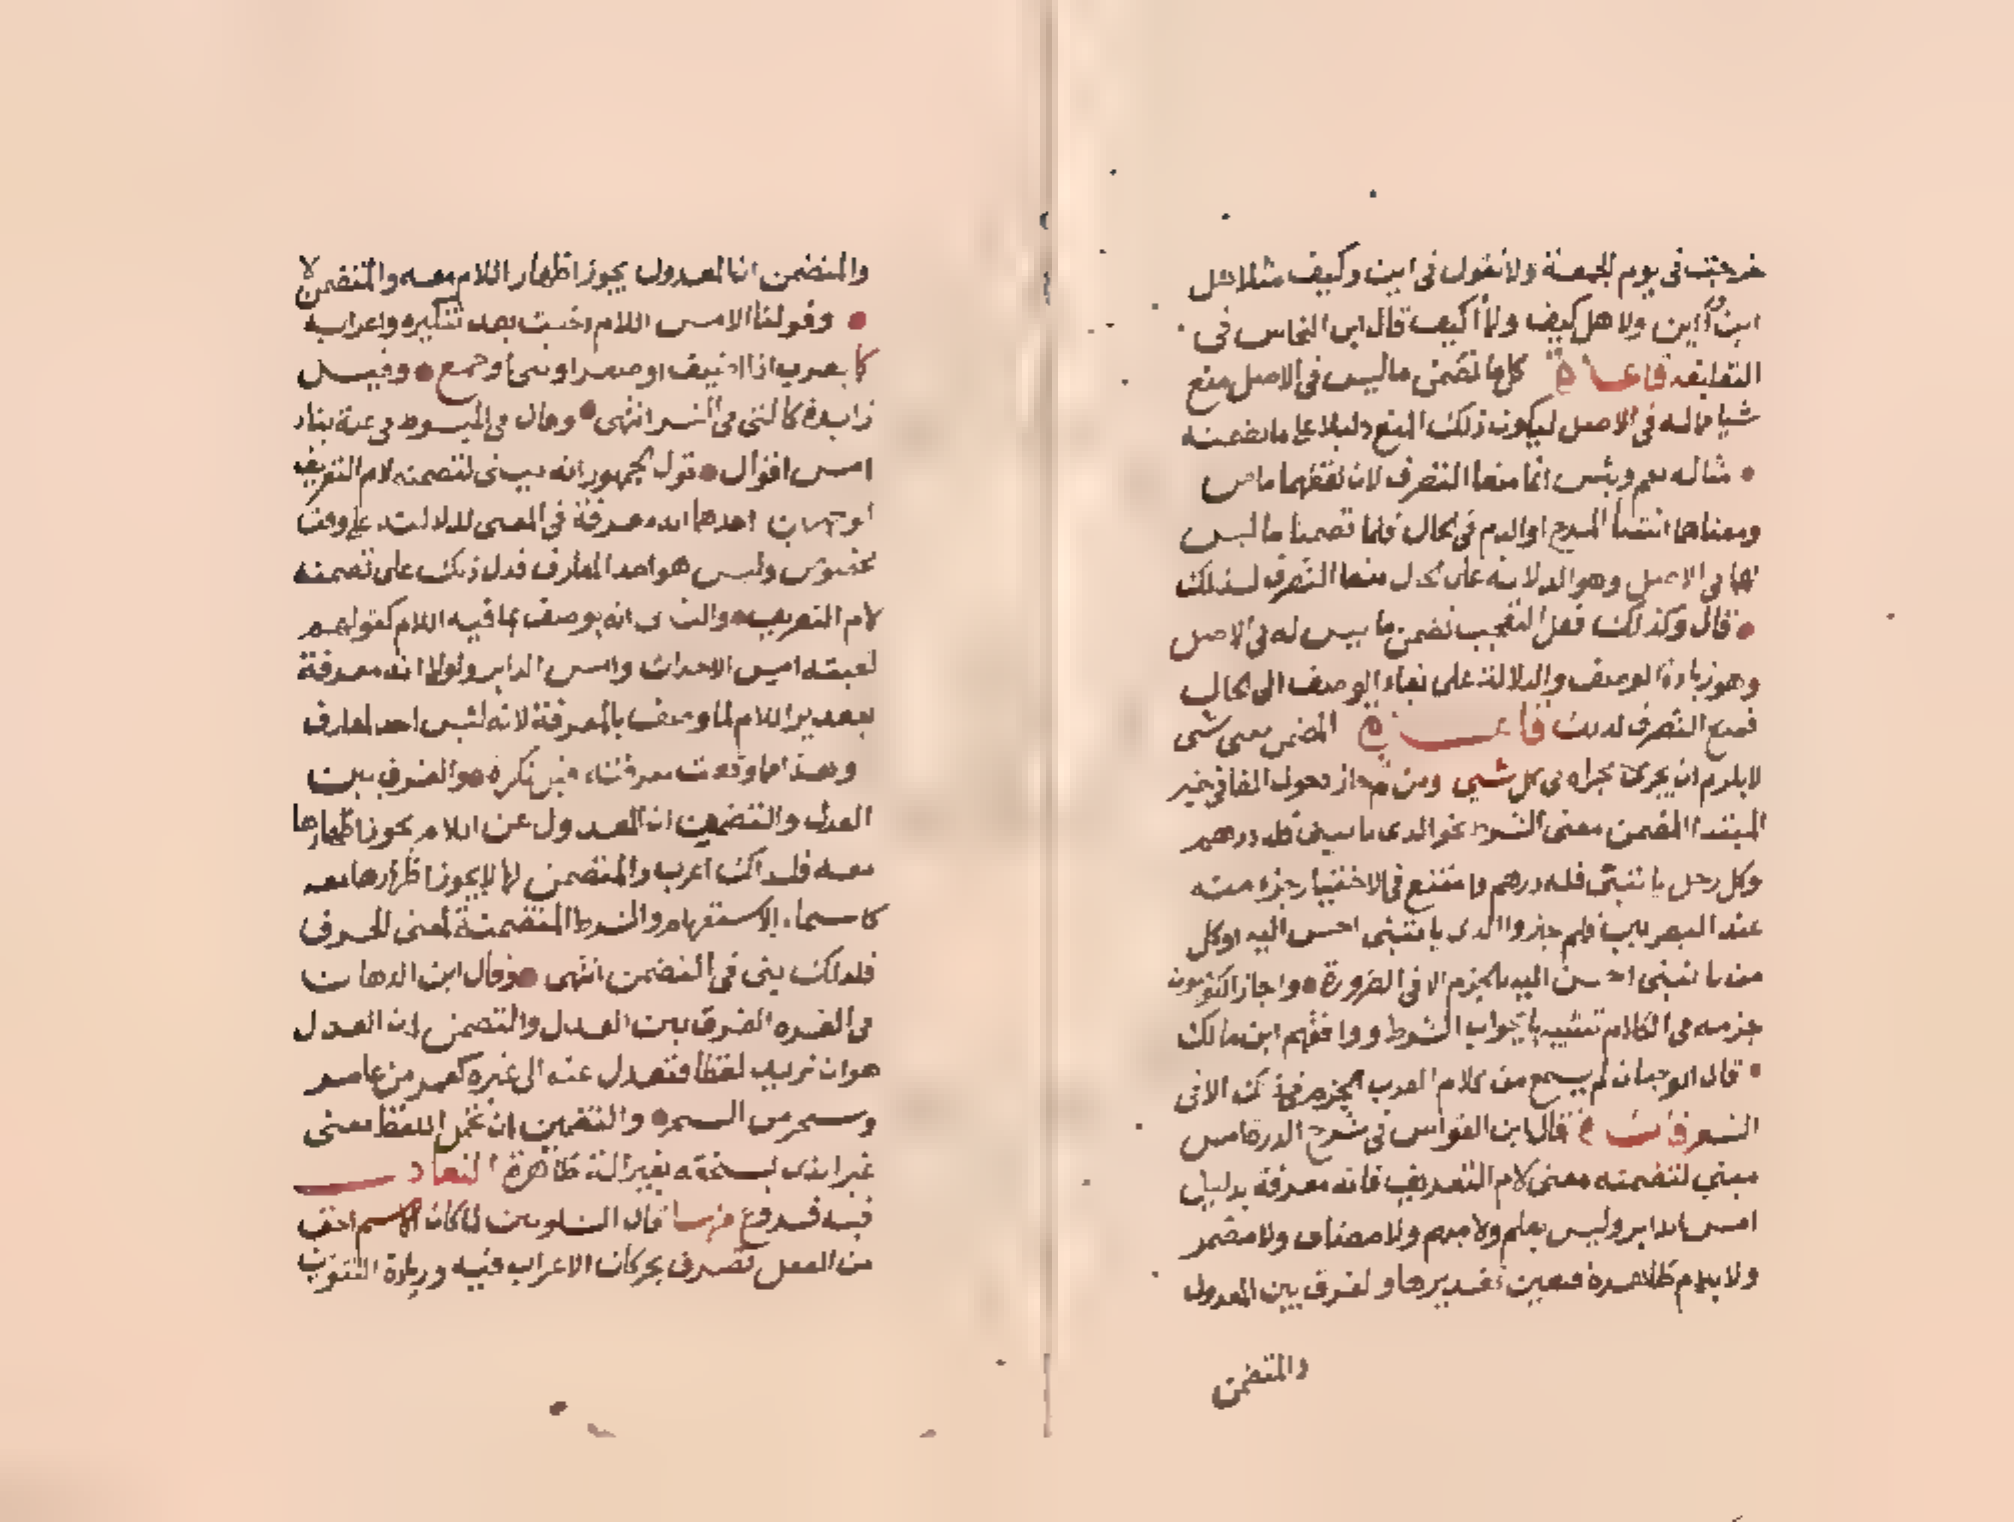 خرجت في يوم الجمعة ولا تقول في اين وكيف مثلا هل
اين ولا أاين ولا هل كيف ولا أكيف قال ابن النحاس في
التعليقة قاعدة كلما تضمن ما ليس في الاصل منع
شيا ماله في الاصل ليكون ذلك المنع دليلا على ما تضمنه
مثاله نعم وبئس انما منعا التصرف لان لفظهما ماض
ومعناهما انشاء المدح او الذم في الحال فلما تضمنا ما ليس
لهما في الاصل وهو الدلالة على الحال منعا التصرف لذلك
قال وكذلك فعل التعجب تضمن ما ليس له في الاصل
وهو زيادة الوصف والدلالة على بقاء الوصف الى الحال
فمنع التصرف لذلك قاعدة المضمن معنى شي
لا يلزم ان يجرى مجراه في كل شي ومن ثم جاز دخول الفا في خبر
المبتدا المضمن معنى الشرط نحو الذي ياتيني فله درهم
وكل رجل ياتيني فله درهم وامتنع في الاختيار جزمه
عند البصريين فلم يجيزوا الذي ياتيني احسن اليه او كل
من ياتيني احسن اليه بالجزم الا في الضرورة واجاز الكوفيون
جزمه في الكلام تشبيها بجواب الشرط ووافقهم ابن مالك
قال ابو حيان لم يسمع من كلام العرب الجزم في ذلك الا في
الشعر فائدة قال ابن القواس في شرح الدرة امس
مبني لتضمنه معنى لام التعريف فانه معرفة بدليل
امس الدابر وليس بعلم ولا مبهم ولا مضاف ولا مضمر
ولا بلام ظاهرة فتعين تقديرها والفرق بين المعدول
والمتضمن
والمتضمن ان المعدول يجوز اظهار اللام معه والمتضمن لا
وقولنا الامس اللام اجتلبت بعد تنكيره واعرابه
كما يعرب اذا اضيف او صغر او ثني او جمع وقيل
زايدة كالتي في النسر انتهى وقال في البسيط في علة بناء
امس اقوال قول الجمهور انه يبنى لتضمنه لام التعريف
لوجهين احدهما انه معرفة في المعنى لدلالته على وقت
مخصوص وليس هو احد المعارف فدل ذلك على تضمنه
لام التعريف والثاني انه يوصف بما فيه اللام كقولهم
لقيته امس الاحدث وامس الدابر ولولا انه معرفة
بتقدير اللام لما وصف بالمعرفة لانه ليس احد المعارف
وهذا مما وقعت معرفته قبل نكرته والفرق بين
العدل والتضمين ان المعدول عن اللام يجوز اظهارها
معه فلذلك اعرب والمتضمن لها لا يجوز اظهارها معه
كاسماء الاستفهام والشرط المتضمنة لمعنى الحرف
فلذلك بني في التضمن انتهى وقال ابن الدهان
في الغرة الفرق بين العدل والتضمن ان العدل
هو ان تريد لفظا فتعدل عنه الى غيره كعمر من عامر
وسحر من السحر والتضمين ان تحمل اللفظ معنى
غير الذي يستحقه بغير الة ظاهرة التعادل
فيه فروع منها قال الشلوبين لما كان الاسم اخف
من الفعل تصرف بحركات الاعراب فيه وزيادة التنوين